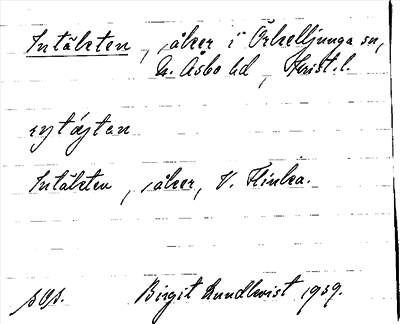 Intäkten, åker i Örkelljunga sn,
N. Åsbo hd, Krist. l.
Intäkten, åker, V. Flinka.
Birgit Lundkvist 1959.